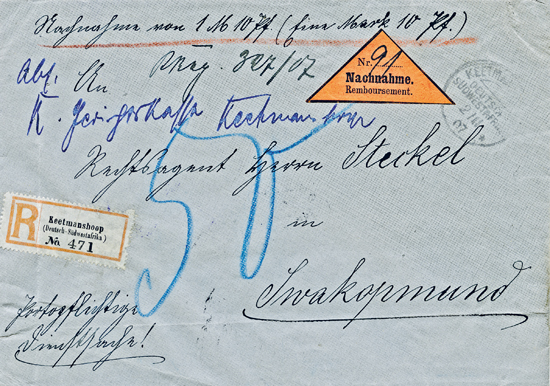 Nachnahme von 1 M 10 Pf. (Eine Mark 10 Pf.)
Nr. 91
Nachnahme.
Remboursement.
Abs.
An
327/07
K. Gerichtskasse Keetmanshoop
Rechtsagent Herrn Steckel
in
Swakopmund
R
Keetmanshoop
(Deutsch-Südwestafrika)
No. 471
Portopflichtige
Dienstsache!
KEETMA
DEUTSCH
SÜDWEST
07
50